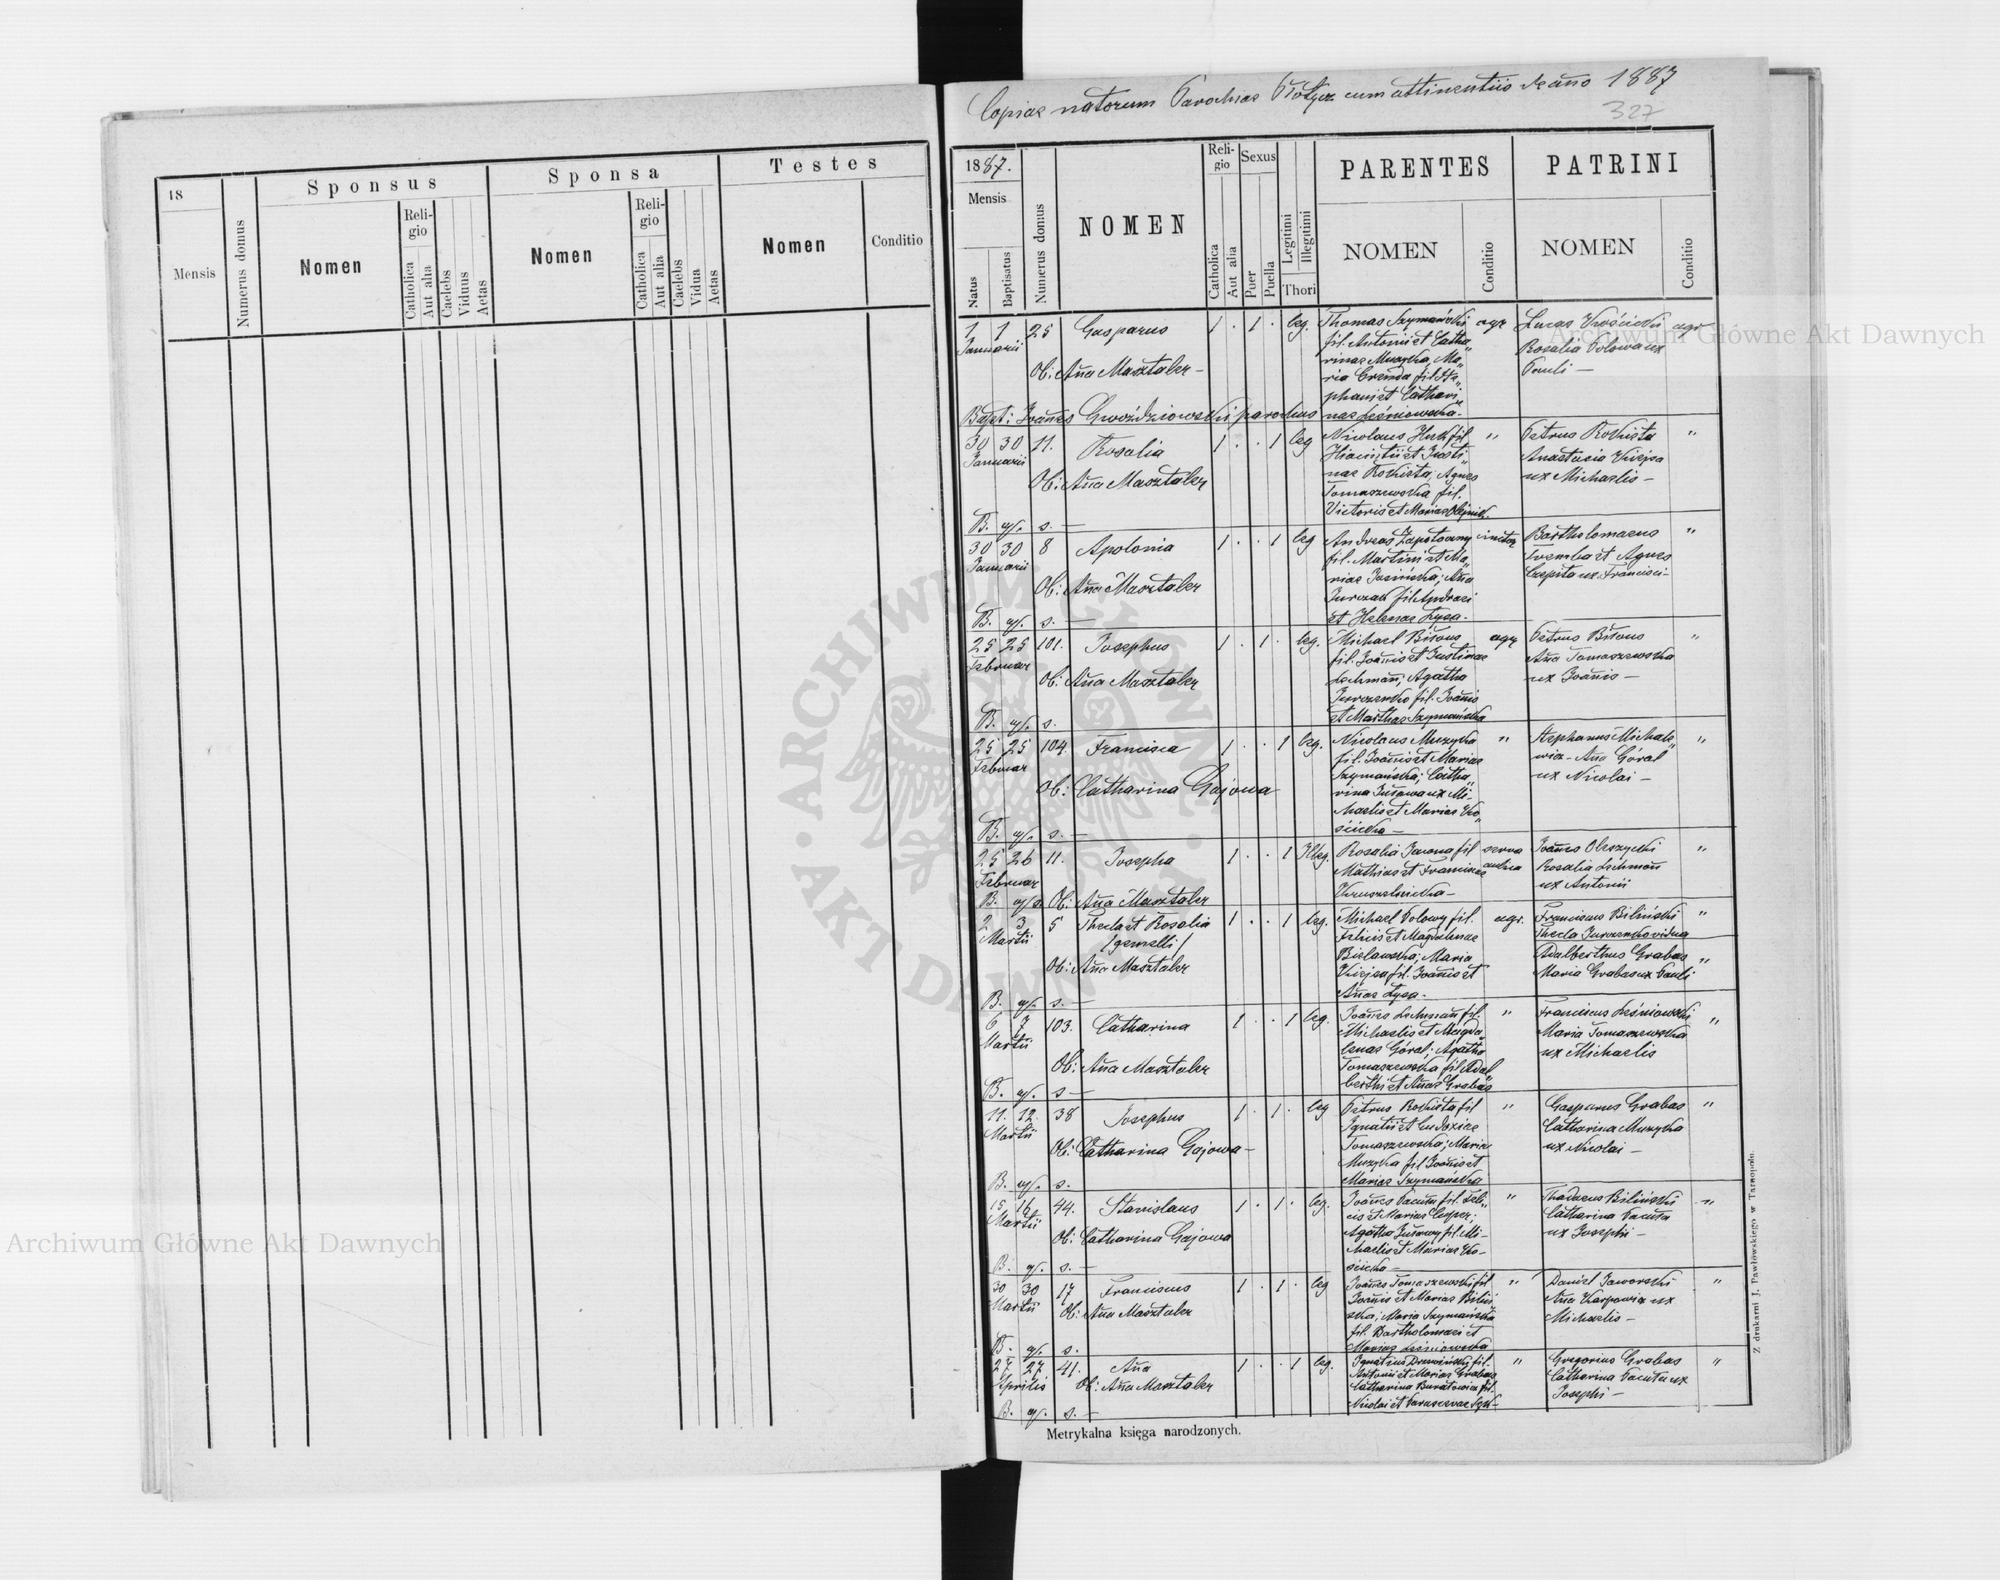 Copiae natorum Parochiae Płotycz cum attinentiis de año 1887
327
18
Sponsus
Sponsa
Testes
Mensis
Numerus domus
Nomen
Religio
Catholica
Aut alia
Caelebs
Viduus
Aetas
Nomen
Religio
Catholica
Aut alia
Caelebs
Vidua
Aetas
Nomen
Conditio
1887.
Mensis
Natus
Baptisatus
Numerus domus
NOMEN
Religio
Catholica
Aut alia
Sexus
Puer
Puella
Legitimi
Illegitimi
Thori
PARENTES
NOMEN
Conditio
PATRINI
NOMEN
Conditio
1 1 25 Gasparus 1 . 1 . leg.
Januarii
Ob: Aña Masztaler —
Thomas Szymański agr
fil. Antonii et Catha„
rinae Muzyka, Ma„
ria Grenda fil. Ste„
phani et Cathari„
nae Leśniowska.
Lucas Krościcki agr
Rosalia Wolowa ux
Pauli —
Bapt: Joañes Gwoździowski parochus
30 30 11. Rosalia 1 . . 1 leg
Januarii
Ob: Aña Masztaler
Nicolaus Huk fil „
Hiacintii et Justi„
nae Rokista; Agnes
Tomaszewska fil.
Victoris et Mariae Olejnik.
Petrus Rokista „
Anastasia Kiejza
ux Michaelis —
B. q/. s. —
30 30 8 Apolonia 1 . . 1 leg
Januarii
Ob: Aña Masztaler
Andreas Zapotoczny
fil. Martini et Ma„
riae Jasińska; Aña
Jurczak fil Andreae
et Helenae Łysa.
Bartholomaeus „
Tremba et Agnes
Czepita ux Francisci —
B. q/. s. —
25 25 101. Josephus 1 . 1 . leg.
Februar
Ob: Aña Masztaler
Michael Biłous agr
fil. Joañis et Justinae
Lehmañ; Agatha
Jurczenko fil. Joañis
et Marthae Szymańska
Petrus Biłous „
Aña Tomaszewska
ux Joañis —
B. q/. s.
25 25 104. Francisca 1 . . 1 leg.
Februar
Ob: Catharina Gajowa
Nicolaus Muzyka „
fil. Joañis et Mariae
Szymańska; Catha„
rina Juśowa ux Mi„
chaelis et Mariae Kro„
ścicka —
Stephanus Michale„ „
wicz — Aña Góral
ux Nicolai —
B. q/. s. —
25 26 11. Josepha 1 . . 1 Illeg.
Februar
B. q/. s. Ob: Aña Masztaler
Rosalia Jawna fil serva
Mathiae et Franciscae
Kruszelnicka —
Joañes Olszycki „
Rosalia Lehmañ
ux Antonii
2 3 5 Thecla et Rosalia 1 . . 1 leg.
Martii /gemelli/
Ob: Aña Masztaler
Michael Wolowy fil. agr.
Felicis et Magdalenae
Bielawska; Maria
Kiejza fil. Joañis et
Añae Łysa.
Franciscus Biliński „
Thecla Jurczenko vidua
Adalberthus Grabas „
Maria Grabas ux Pauli
B. q/. s. —
6 7 103. Catharina 1 . . 1 leg.
Martii
Ob: Aña Masztaler
Joañes Lehmañ fil. „
Michaelis et Magda„
lenae Góral; Agatha
Tomaszewska fil. Adal„
berthi et Añae Grabas
Franciscus Leśniowski „
Maria Tomaszewska
ux Michaelis
B. q/. s —
11. 12. 38 Josephus 1 . 1 . leg
Martii
Ob: Catharina Gajowa —
Petrus Rokista fil „
Ignatii et Eudoxiae
Tomaszewska; Maria
Muzyka fil Joañis et
Mariae Szymańska
Gasparus Grabas „
Catharina Muzyka
ux Nicolai —
B. q/. s.
15 16 44. Stanislaus 1 . 1 . leg.
Martii
Ob: Catharina Gajowa
Joañes Pacuła fil. Feli„ „
cis et Mariae Casper;
Agatha Juśowy fil. Mi„
chaelis et Mariae Kro„
ścicka —
Thadaeus Biliński „
Catharina Pacuła
ux Josephi —
B. q/. s. —
30 30 17 Franciscus 1 . 1 . leg
Martii
Ob: Aña Masztaler
Joañes Tomaszewski fil. „
Joañis et Mariae Biliń„
ska; Maria Szymańska
fil. Bartholomaei et
Mariae Leśniowska
Daniel Jaworski „
Aña Karpowicz ux
Michaelis —
B. q/. s.
27 27 41. Aña 1 . . 1 leg.
Aprilis
Ob: Aña Masztaler
Ignatius Drewiński fil. „
Antonii et Mariae Grabas
Catharina Buratowicz fil.
Gregorius Grabas „
Catharina Pacuła ux
Josephi —
B. q/. s. —
Metrykalna księga narodzonych.
Z drukarni J. Pawłowskiego w Tarnopolu.
Archiwum Główne Akt Dawnych
Archiwum Główne Akt Dawnych
ARCHIWUM GŁÓWNE · AKT DAWNYCH ·